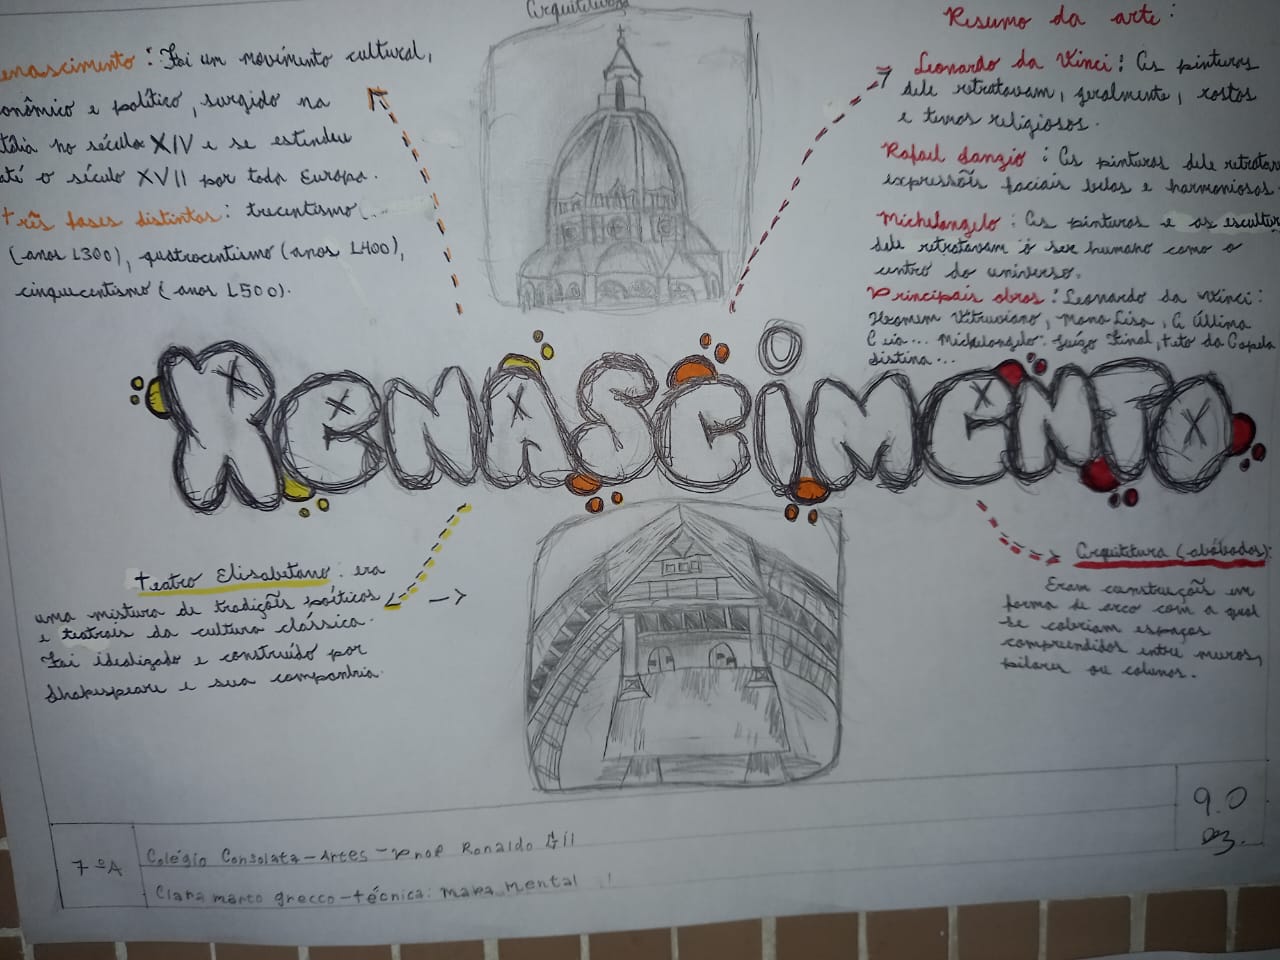 Arquitetura
enascimento: Foi um movimento cultural,
onômico e político, surgido na
tália no século XIV e se estendeu
até o século XVII por toda Europa.
três fases distintas: trecentismo
(anos 1300), quatrocentismo (anos 1400),
cinquecentismo (anos 1500).
Resumo da arte:
Leonardo da Vinci: As pinturas
dele retratavam, geralmente, rostos
e temas religiosos.
Rafael Sanzio: As pinturas dele retratav
expressões faciais belas e harmoniosas.
Michelangelo: As pinturas e as escultur
dele retratavam o ser humano como o
centro do universo.
Principais obras: Leonardo da Vinci:
Homem Vitruviano, Mona Lisa, A Última
Ceia... Michelangelo: Juízo Final, teto da Capela
Sistina...
RENASCIMENTO
teatro Elisabetano: era
uma mistura de tradições poéticas
e teatrais da cultura clássica.
Foi idealizado e construído por
Shakespeare e sua companhia.
Arquitetura (abóbadas):
Eram construções em
forma de arco com a qual
se cobriam espaços
compreendidos entre muros,
pilares ou colunas.
9.0
7ºA
Colégio Consolata-Artes-Prof Ronaldo Gil
Clara marto grecco-técnica: mapa mental